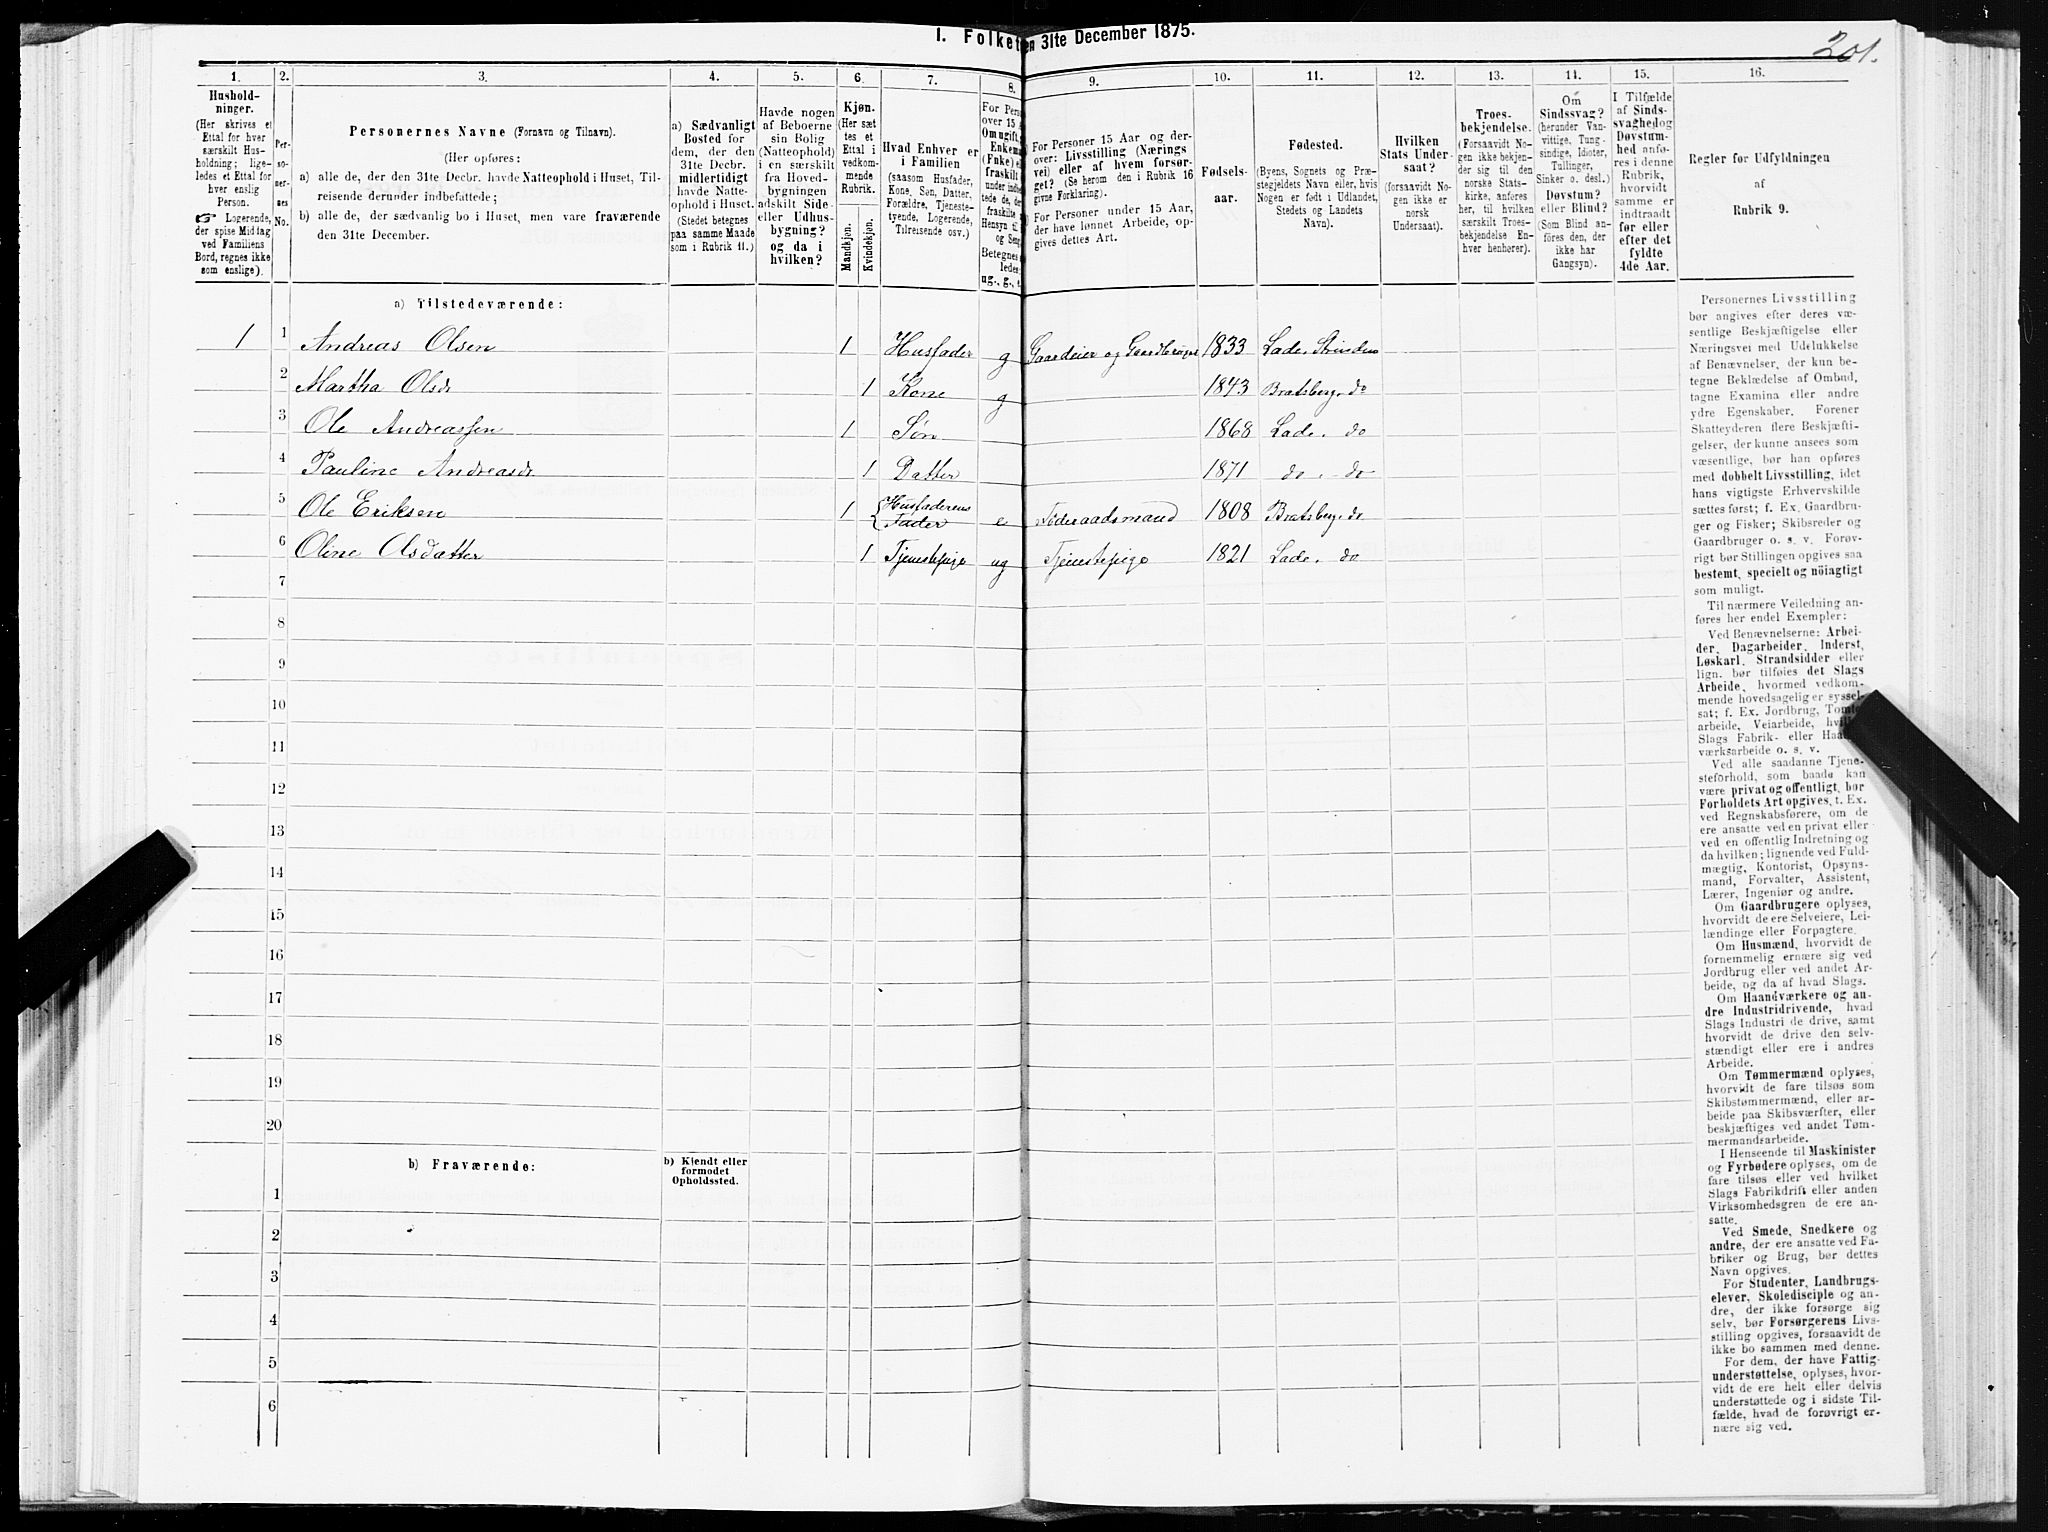 I. Folket en 31te December 1875.
201.
1. 2. 3. 4. 5. 6. 7. 8. 9. 10. 11. 12. 13. 14. 15. 16.
Hushold-
ninger.
(Her skrives et
Ettal for hver
særskilt Hus-
holdning; lige-
ledes et Ettal for
hver enslig
Person.
☞ Logerende,
der spise Middag
ved Familiens
Bord, regnes ikke
som enslige).
Per-
so-
ner-
nes
No.
Personernes Navne (Fornavn og Tilnavn).
(Her opføres:
a) alle de, der den 31te Decbr. havde Natteophold i Huset, Til-
reisende derunder indbefattede;
b) alle de, der sædvanlig bo i Huset, men vare fraværende
den 31te December.
a) Sædvanligt
Bosted for
dem, der den
31te Decbr.
midlertidigt
havde Natte-
ophold i Huset.
(Stedet betegnes
paa samme Maade
som i Rubrik 11.)
Havde nogen
af Beboerne
sin Bolig
(Natteophold)
i en særskilt
fra Hoved-
bygningen
adskilt Side-
eller Udhus-
bygning?
og da i
hvilken?
Kjøn.
(Her sæt
tes et
Ettal i
vedkom-
mende
Rubrik.
Mandkjøn.
Kvindekjøn.
Hvad Enhver er
i Familien
(saasom Husfader,
Kone, Søn, Datter,
Forældre, Tjeneste-
tyende, Logerende,
Tilreisende osv.)
For Pers
over 15
Om ugift,
Enkema
(Fnke) e
fraskilt
under indb
rede de, de
fraskilte
Hensyn ti
og Seng
Betegnes
ledes:
ug., g., e.
For Personer 15 Aar og der-
over: Livsstilling (Nærings
vei) eller af hvem forsør-
get? (Se herom den i Rubrik 16
givne Forklaring).
For Personer under 15 Aar,
der have lønnet Arbeide, op-
gives dettes Art.
Fødsels-
aar.
Fødested.
(Byens, Sognets og Præ-
stegjeldets Navn eller, hvis
Nogen er født i Udlandet,
Stedets og Landets
Navn).
Hvilken
Stats Under-
saat?
(forsaavidt No-
gen ikke er
norsk
Undersaat).
Troes-
bekjendelse.
(Forsaavidt No-
gen ikke bekjen-
der sig til den
norske Stats-
kirke, anføres
her, til hvilken
særskilt Troes-
bekjendelse En-
hver henhører).
Om
Sindssvag?
(herunder Van-
vittige, Tung-
sindige, Idioter,
Tullinger,
Sinker o. desl.)
Døvstum?
eller Blind?
(Som Blind an-
føres den, der
ikke har
Gangsyn).
I Tilfælde
af Sinds-
svaghed og
Døvstum-
hed anfø-
res i denne
Rubrik,
hvorvidt
samme er
indtraadt
før eller
efter det
fyldte
4de Aar.
Regler for Udfyldningen
af
Rubrik 9.
a) Tilstedeværende:
1 1 Andreas Olsen 1 Husfader g Gaardeier og Gaardbruger 1833 Lade, Strinden
2 Martha Olsdr 1 Kone g 1843 Bratsberg. do
3 Ole Andreassen 1 Søn 1868 Lade. do
4 Pauline Andreasdr 1 Datter 1871 do. do
5 Ole Eriksen 1 Husfaderens Fader e Føderaadsmand 1808 Bratsberg. do
6 Oline Olsdatter 1 Tjenestepige ug Tjenestepige 1821 Lade. do
7
8
9
10
11
12
13
14
15
16
17
18
19
20
b) Fraværende:
b) Kjendt eller
formodet
Opholdssted.
1
2
3
4
5
6
Personernes Livsstilling
bør angives efter deres væ-
sentlige Beskjæftigelse eller
Næringsvei med Udelukkelse
af Benævnelser, der kun be-
tegne Beklædelse af Ombud,
tagne Examina eller andre
ydre Egenskaber. Forener
Skatteyderen flere Beskjæfti-
gelser, der kunne ansees som
væsentlige, bør han opføres
med dobbelt Livsstilling, idet
hans vigtigste Erhvervskilde
sættes først; f. Ex. Gaardbru-
ger og Fisker; Skibsreder og
Gaardbruger o. s. v. Forøv-
rigt bør Stillingen opgives saa
bestemt, specielt og nöiagtigt
som muligt.
Til nærmere Veiledning an-
føres her endel Exempler:
Ved Benævnelserne: Arbei-
der, Dagarbeider, Inderst,
Løskarl, Strandsidder eller
lign. bør tilføies det Slags
Arbeide, hvormed vedkom-
mende hovedsagelig er syssel-
sat; f. Ex. Jordbrug, Tomte-
arbeide, Veiarbeide, hvilket
Slags Fabrik- eller Haand-
værksarbeide o. s. v.
Ved alle saadanne Tjene-
steforhold, som baade kan
være privat og offentligt, bør
Forholdets Art opgives, t. Ex.
ved Regnskabsførere, om de
ere ansatte ved en privat eller
ved en offentlig Indretning og
da hvilken; lignende ved Fuld-
mægtig, Kontorist, Opsyns-
mand, Forvalter, Assistent,
Lærer, Ingeniør og andre.
Om Gaardbrugere oplyses,
hvorvidt de ere Selveiere, Lei-
lændinge eller Forpagtere.
Om Husmænd, hvorvidt de
fornemmelig ernære sig ved
Jordbrug eller ved andet Ar-
beide, og da af hvad Slags.
Om Haandværkere og an-
dre Industridrivende, hvad
Slags Industri de drive, samt
hvorvidt de drive den selv-
stændigt eller ere i andres
Arbeide.
Om Tømmermænd oplyses,
hvorvidt de fare tilsøs som
Skibstømmermænd, eller ar-
beide paa Skibsværfter, eller
beskjæftiges ved andet Tøm-
mermandsarbeide.
I Henseende til Maskinister
og Fyrbødere oplyses, om de
fare tilsøs eller ved hvilket
Slags Fabrikdrift eller anden
Virksomhedsgren de ere an-
satte.
Ved Smede, Snedkere og
andre, der ere ansatte ved Fa-
briker og Brug, bør dettes
Navn opgives.
For Studenter, Landbrugs-
elever, Skoledisciple og an-
dre, der ikke forsørge sig
selv, bør Forsørgerens Livs-
stilling opgives, forsaavidt de
ikke bo sammen med denne.
For dem, der have Fattig-
understøttelse, oplyses, hvor-
vidt de ere helt eller delvis
understøttede og i sidste Til-
fælde, hvad de forøvrigt er-
nære sig ved.